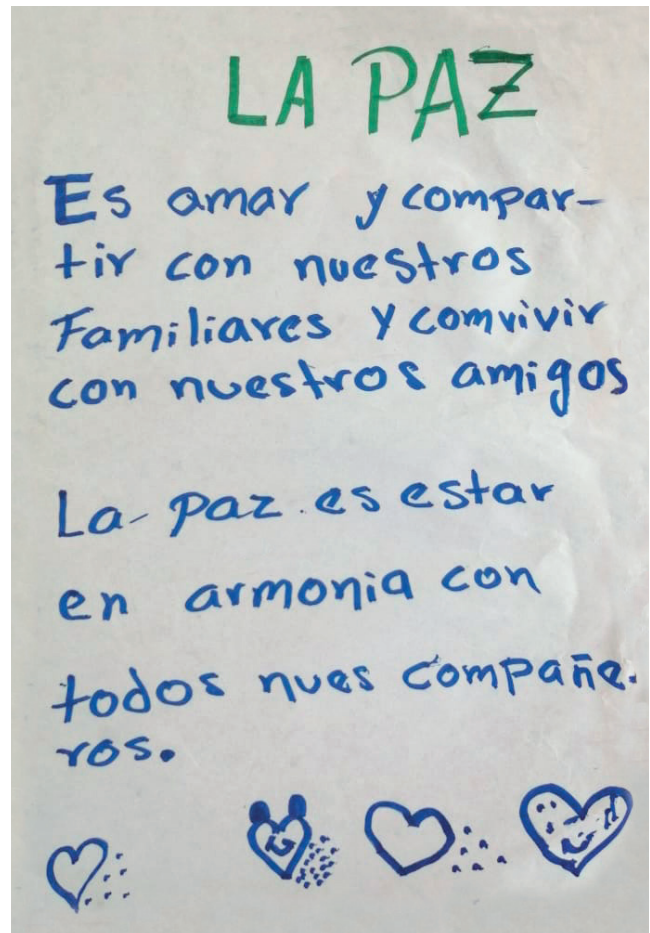 LA PAZ
Es amar y compar-
tir con nuestros
Familiares y comvivir
con nuestros amigos
La paz es estar
en armonia con
todos nues compañe-
ros.